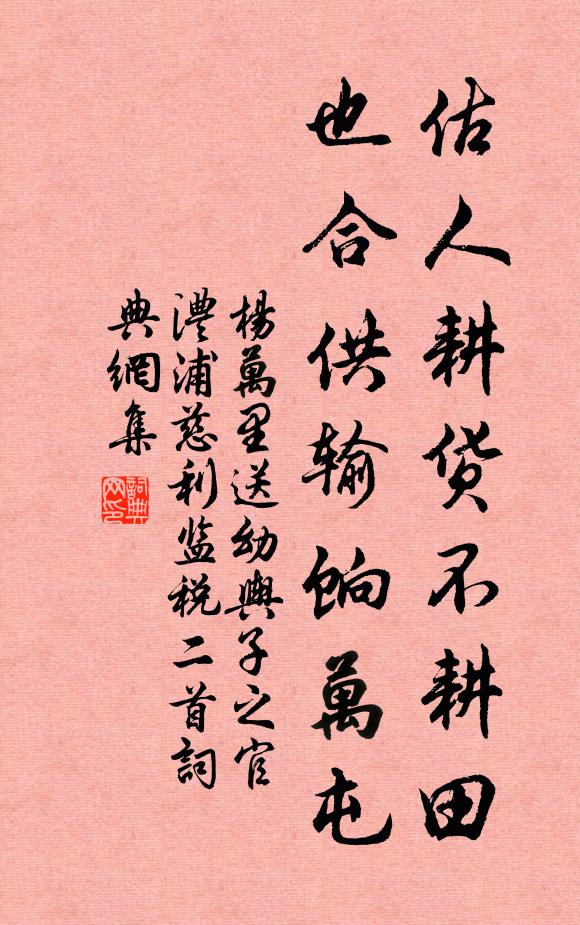 估人耕货不耕田
也合供输餉萬屯
楊萬里送幼輿子之官
澧浦慈利监税二首詞
典網集
詞典网印